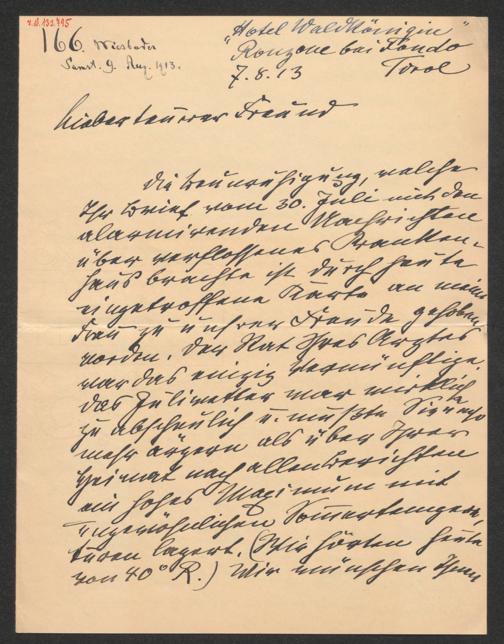 166 Wiesbaden
Samst. 9. Aug. 1913.
"Hotel Waldkönigin"
Ronzone bei Fondo
Tirol
7.8.13
Lieber teurer Freund
die Beunruhigung, welche
Ihr Brief vom 30. Juli mit den
alarmirenden Nachrichten
über verflossenes Kranken-
haus brachte ist durch heute
eingetroffene Karte an meine
Frau zu unsrer Freude gehoben
worden. Der Rat Ihres Arztes
war das einzig vernünftige.
Das Juliwetter war wirklich
zu abscheulich u. mußte Sie umso
mehr ärgern als über Ihrer
Heimat nach allen Berichten
ein hohes Maximum mit
ungewöhnlichen Sommertempera-
turen lagert. (Wir hörten heute
von 40° R.) Wir wünschen Ihnen